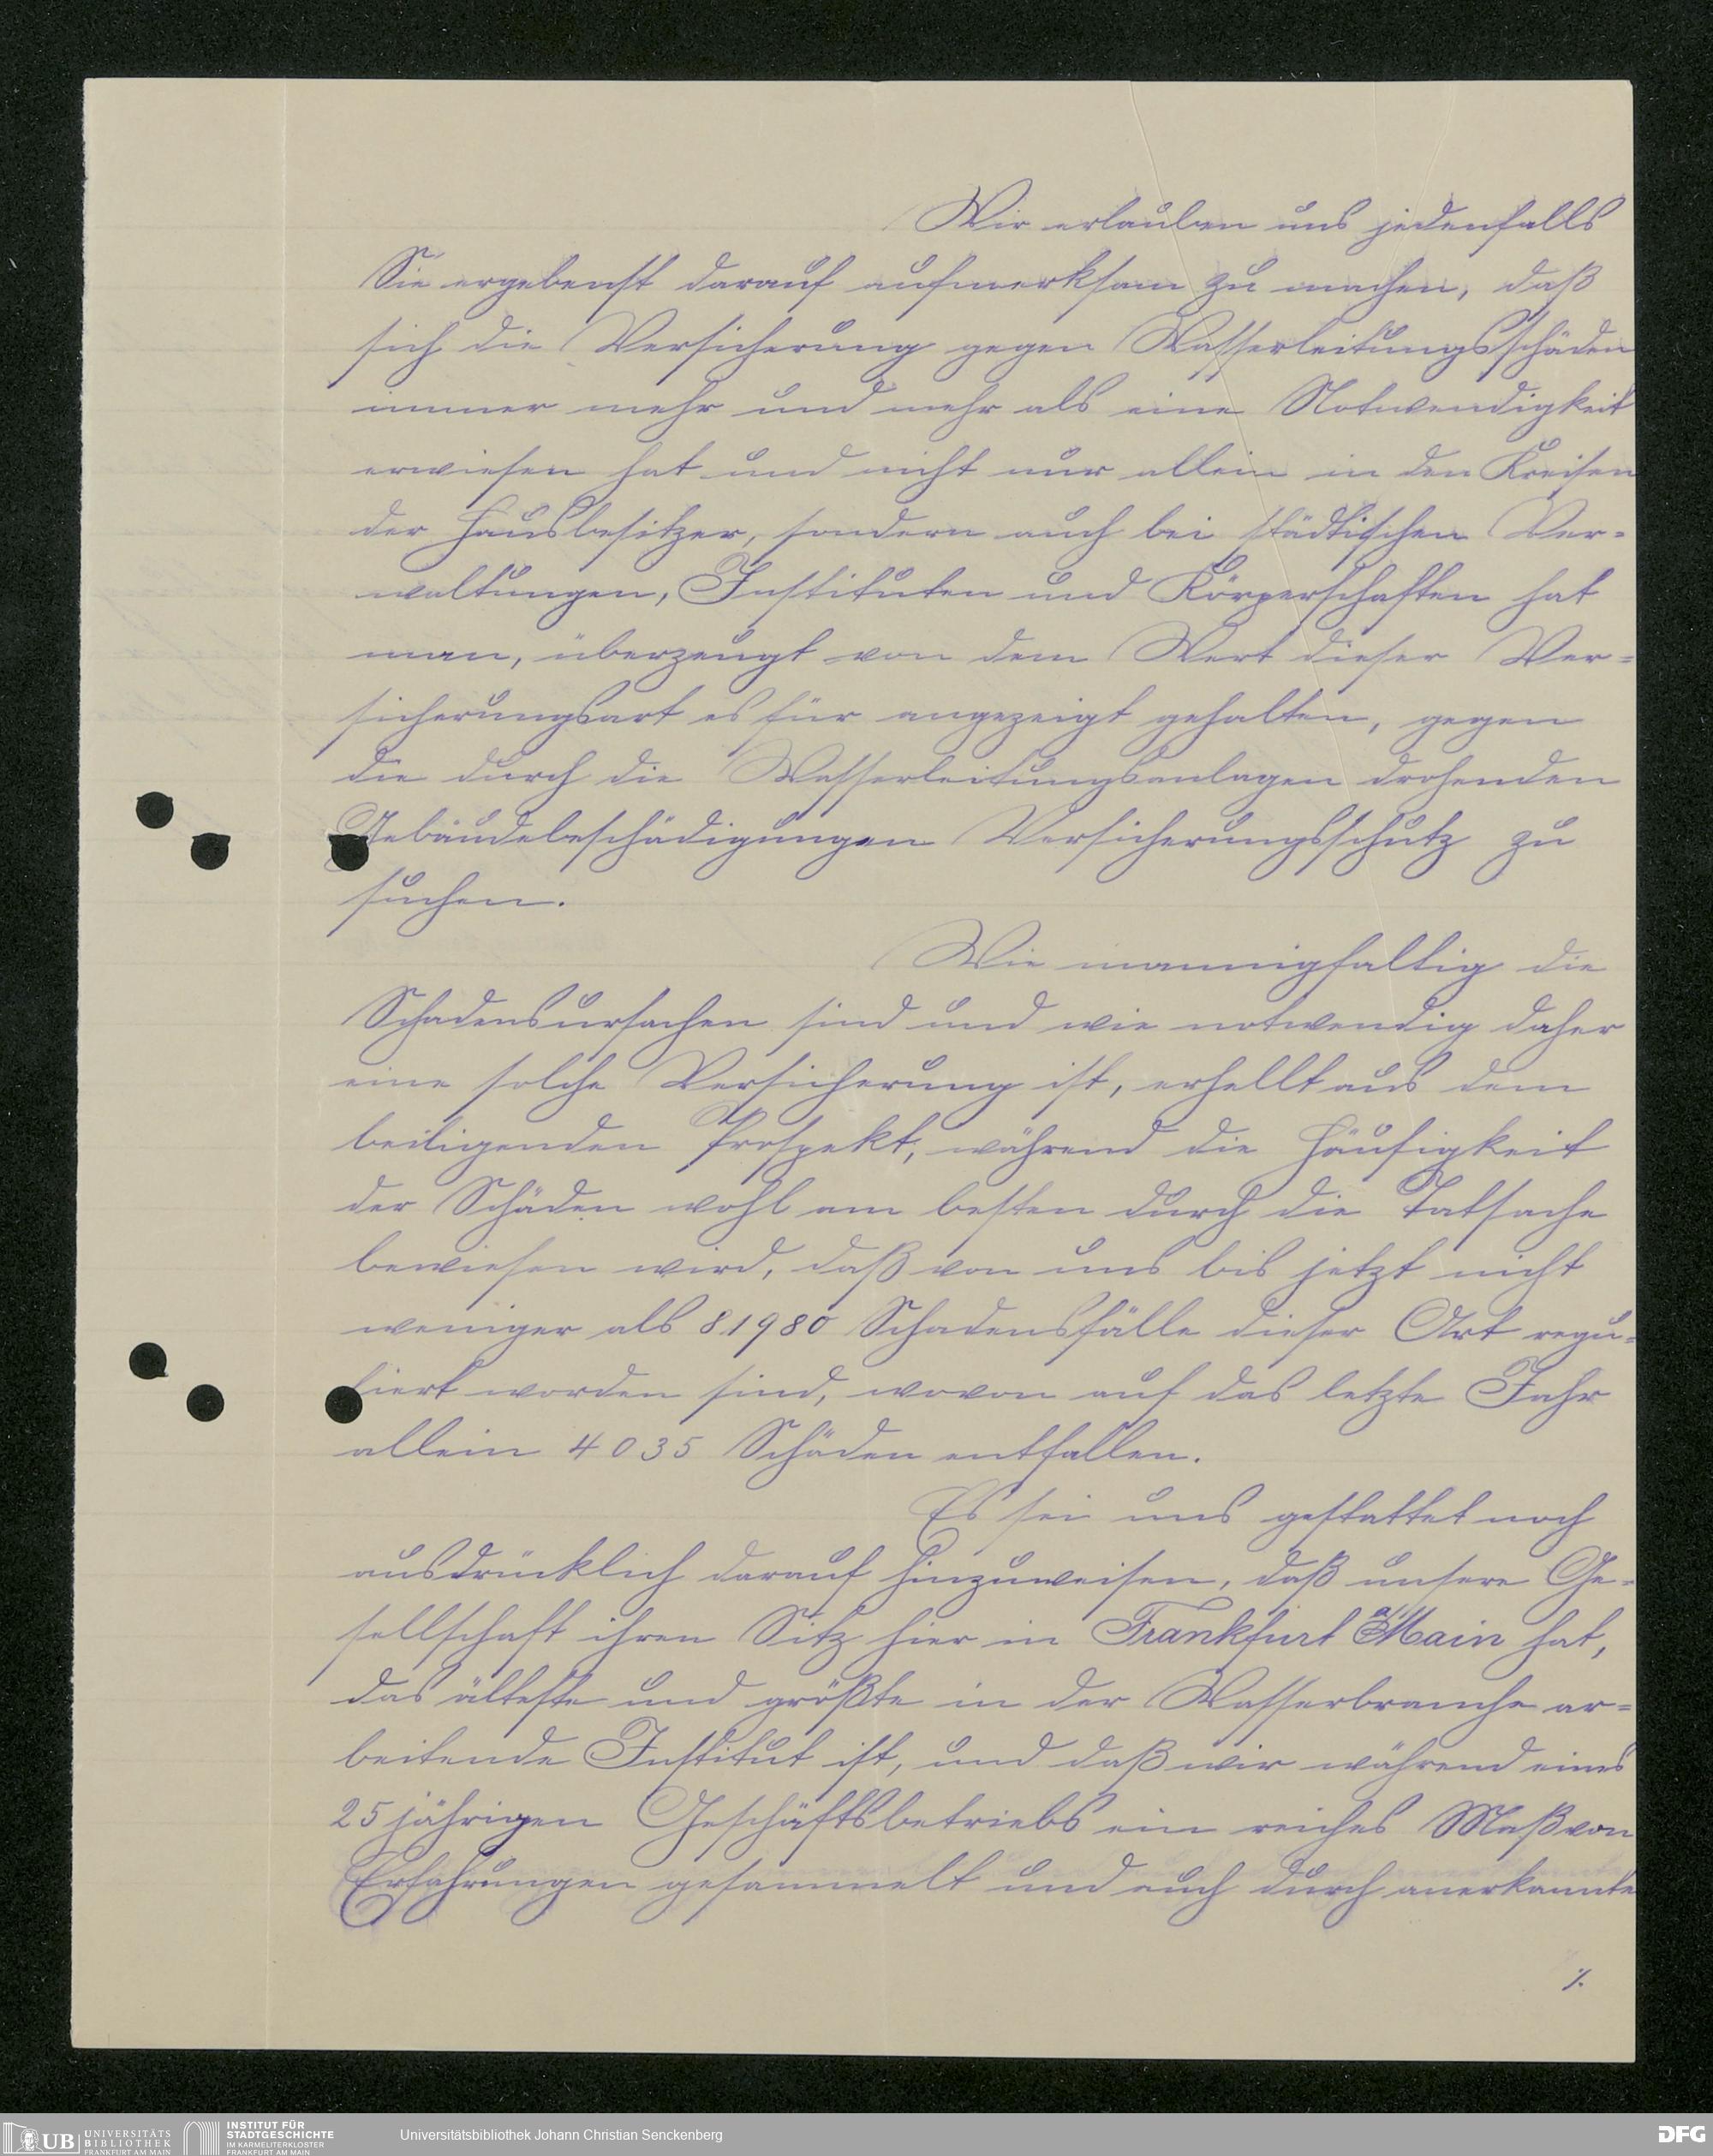 Wir erlauben uns jedenfalls
Sie ergebenst darauf aufmerksam zu machen, daß
sich die Versicherung gegen Wasserleitungsschäden
immer mehr und mehr als eine Notwendigkeit
erwiesen hat und nicht nur allein in den Kreisen
der Hausbesitzer, sondern auch bei städtischen Ver-
waltungen, Instituten und Körperschaften hat
man, überzeugt von dem Wert dieser Ver-
sicherungsart es für angezeigt gehalten, gegen
die durch die Wasserleitungsanlagen drohenden
Gebäudebeschädigungen Versicherungsschutz zu
suchen.
Wie mannigfaltig die
Schadensursachen sind und wie notwendig daher
eine solche Versicherung ist, erhellt aus dem
beiligenden Prospekt, während die Häufigkeit
der Schäden wohl am besten durch die Tatsache
bewiesen wird, daß von uns bis jetzt nicht
weniger als 81980 Schadensfälle dieser Art regu-
liert worden sind, wovon auf das letzte Jahr
allein 4035 Schäden entfallen.
Es sei uns gestattet noch
ausdrücklich darauf hinzuweisen, daß unsere Ge-
sellschaft ihren Sitz hier in Frankfurt a/Main hat,
das älteste und größte in der Wasserbranche ar-
beitende Institut ist, und daß wir während eines
25 jährigen Geschäftsbetriebs ein reiches Maß von
Erfahrungen gesammelt und auch durch anerkannte
./.
UB UNIVERSITÄTS
BIBLIOTHEK
FRANKFURT AM MAIN
INSTITUT FÜR
STADTGESCHICHTE
IM KARMELITERKLOSTER
FRANKFURT AM MAIN
Universitätsbibliothek Johann Christian Senckenberg
DFG